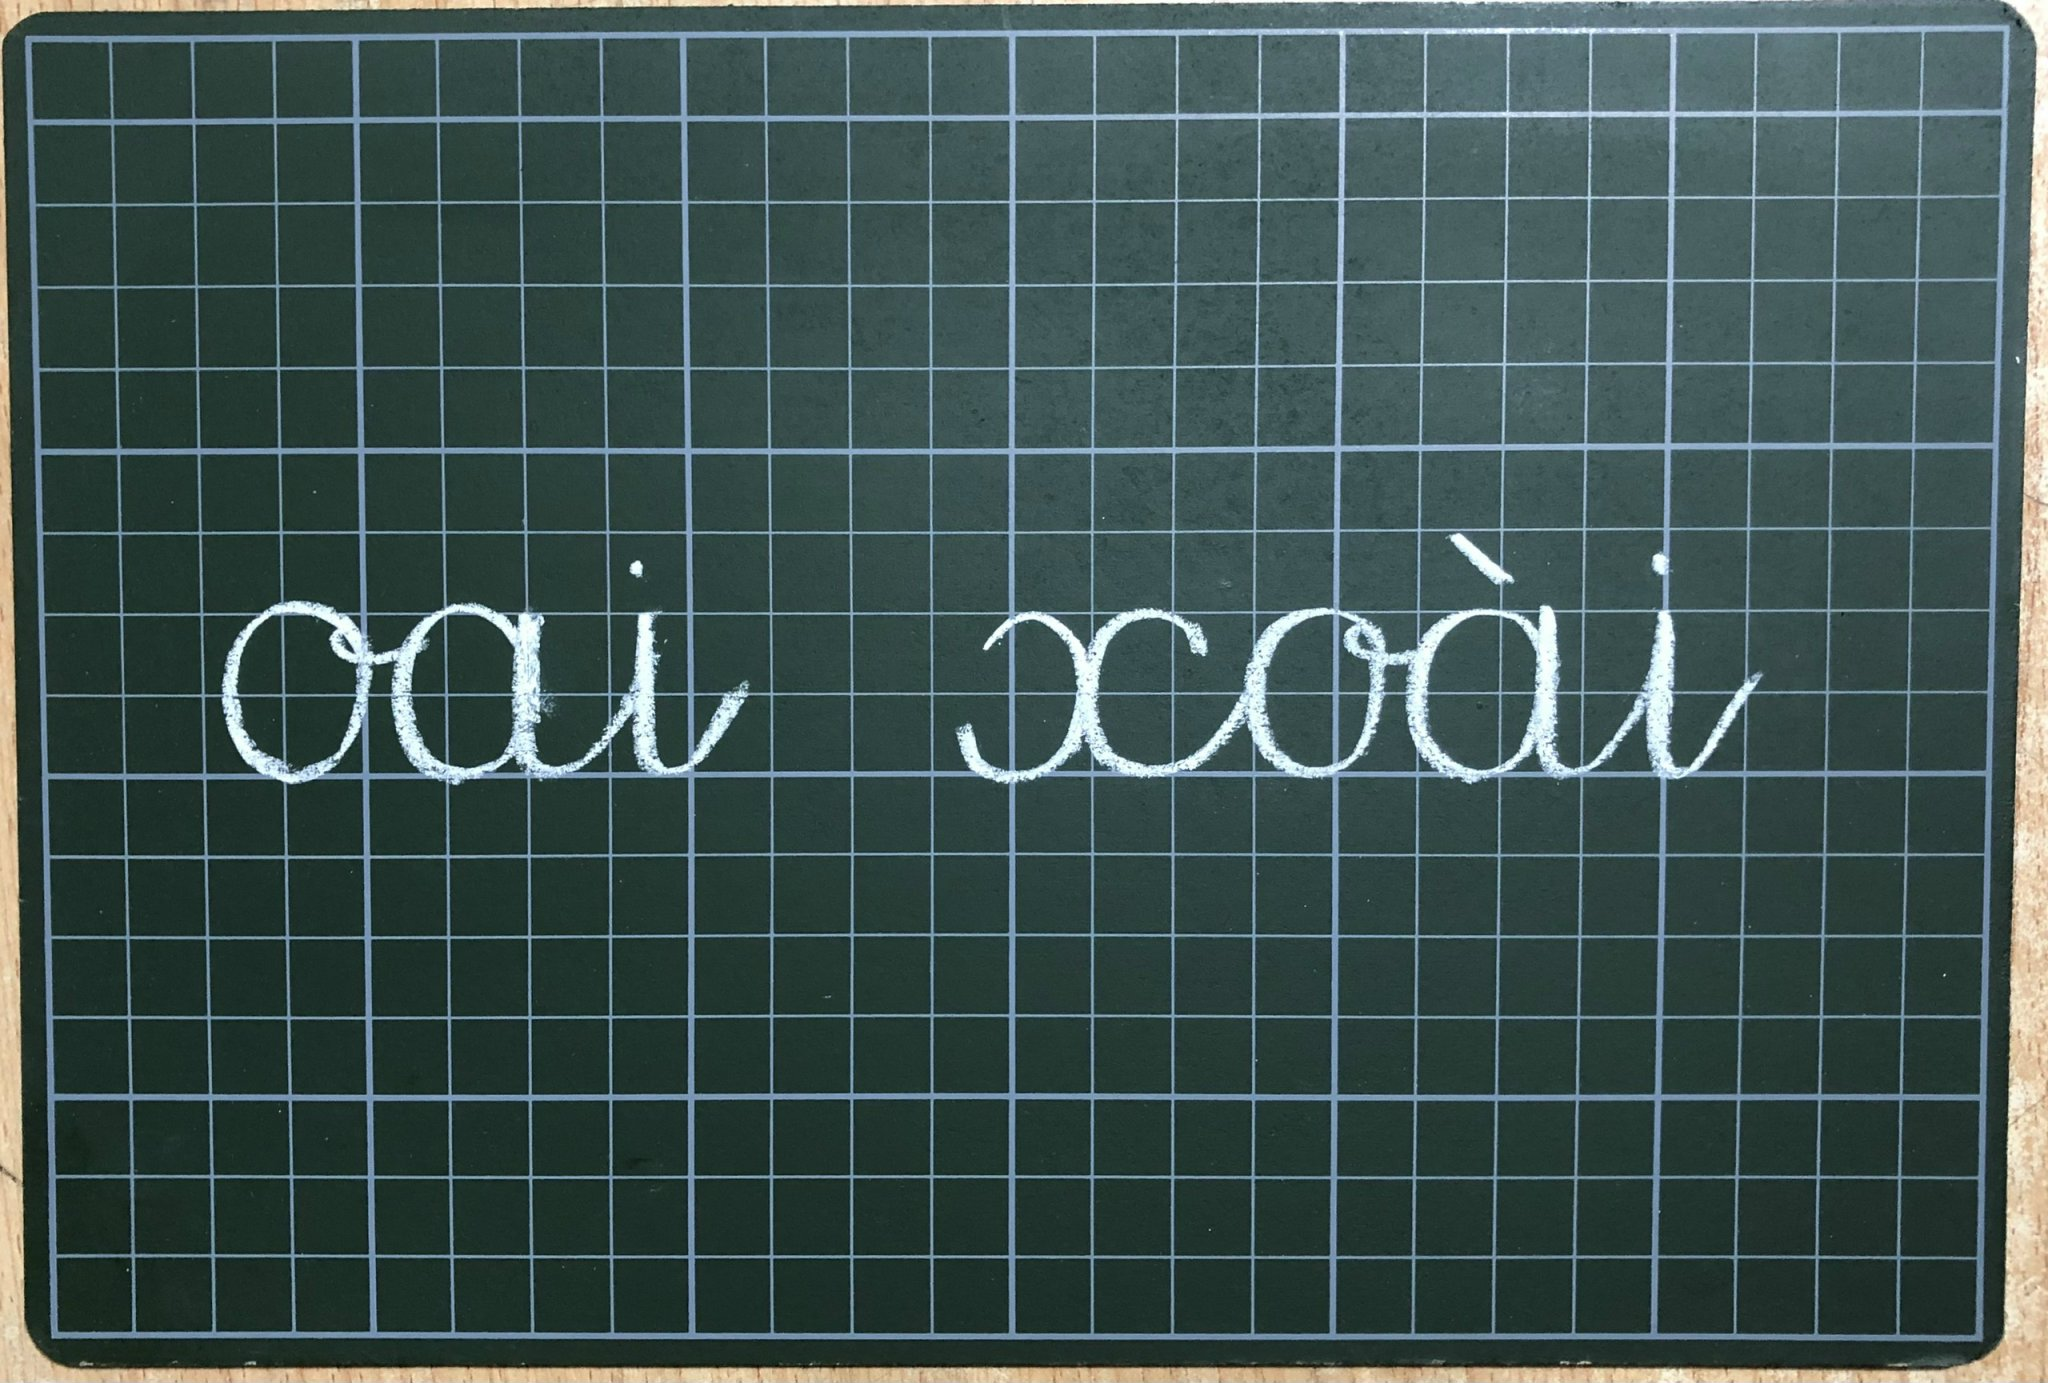 oai xoài